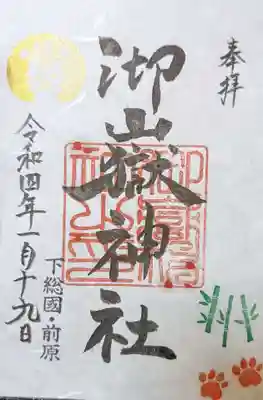 奉拝
御山嶽神社
下総國・前原
令和四年一月十九日